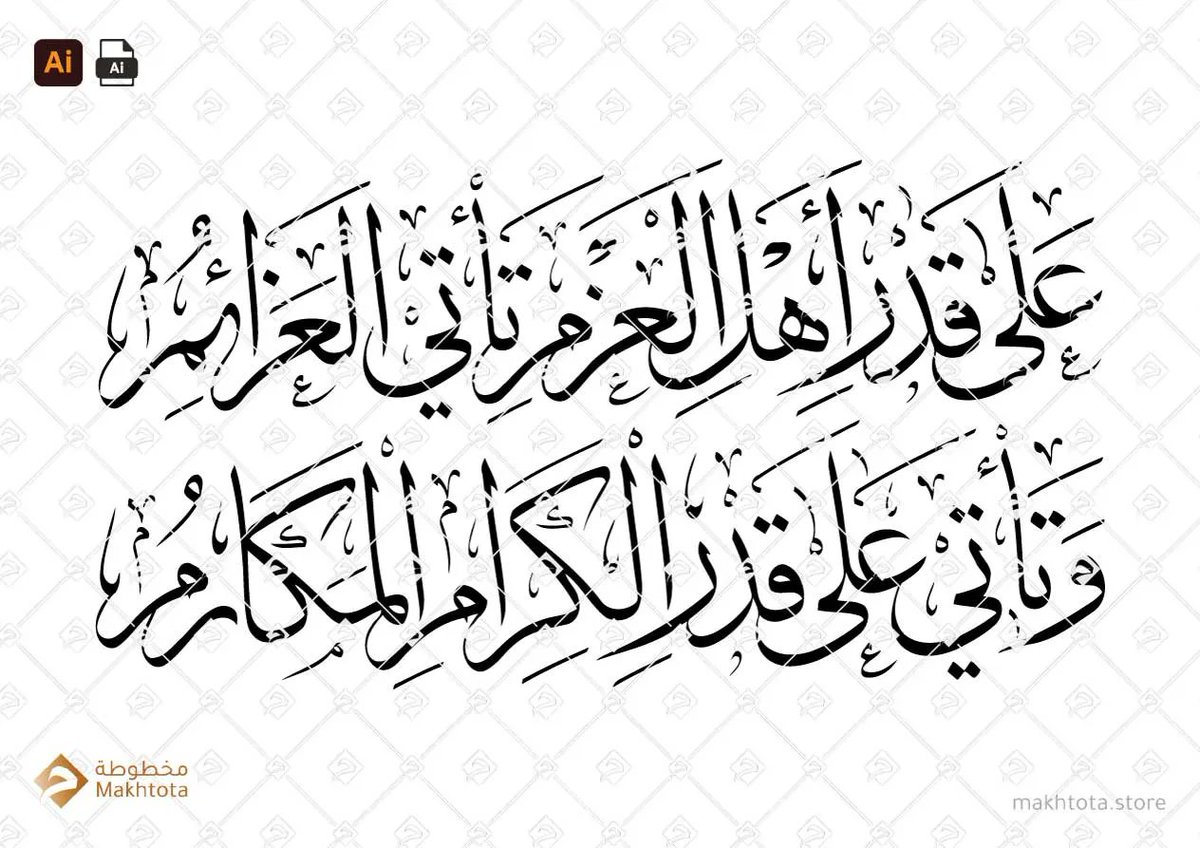 Ai
Ai
عَلَى قَدْرِ أَهْلِ الْعَزْمِ تَأْتِي الْعَزَائِمُ
وَتَأْتِي عَلَى قَدْرِ الْكِرَامِ الْمَكَارِمُ
مخطوطة
Makhtota
makhtota.store